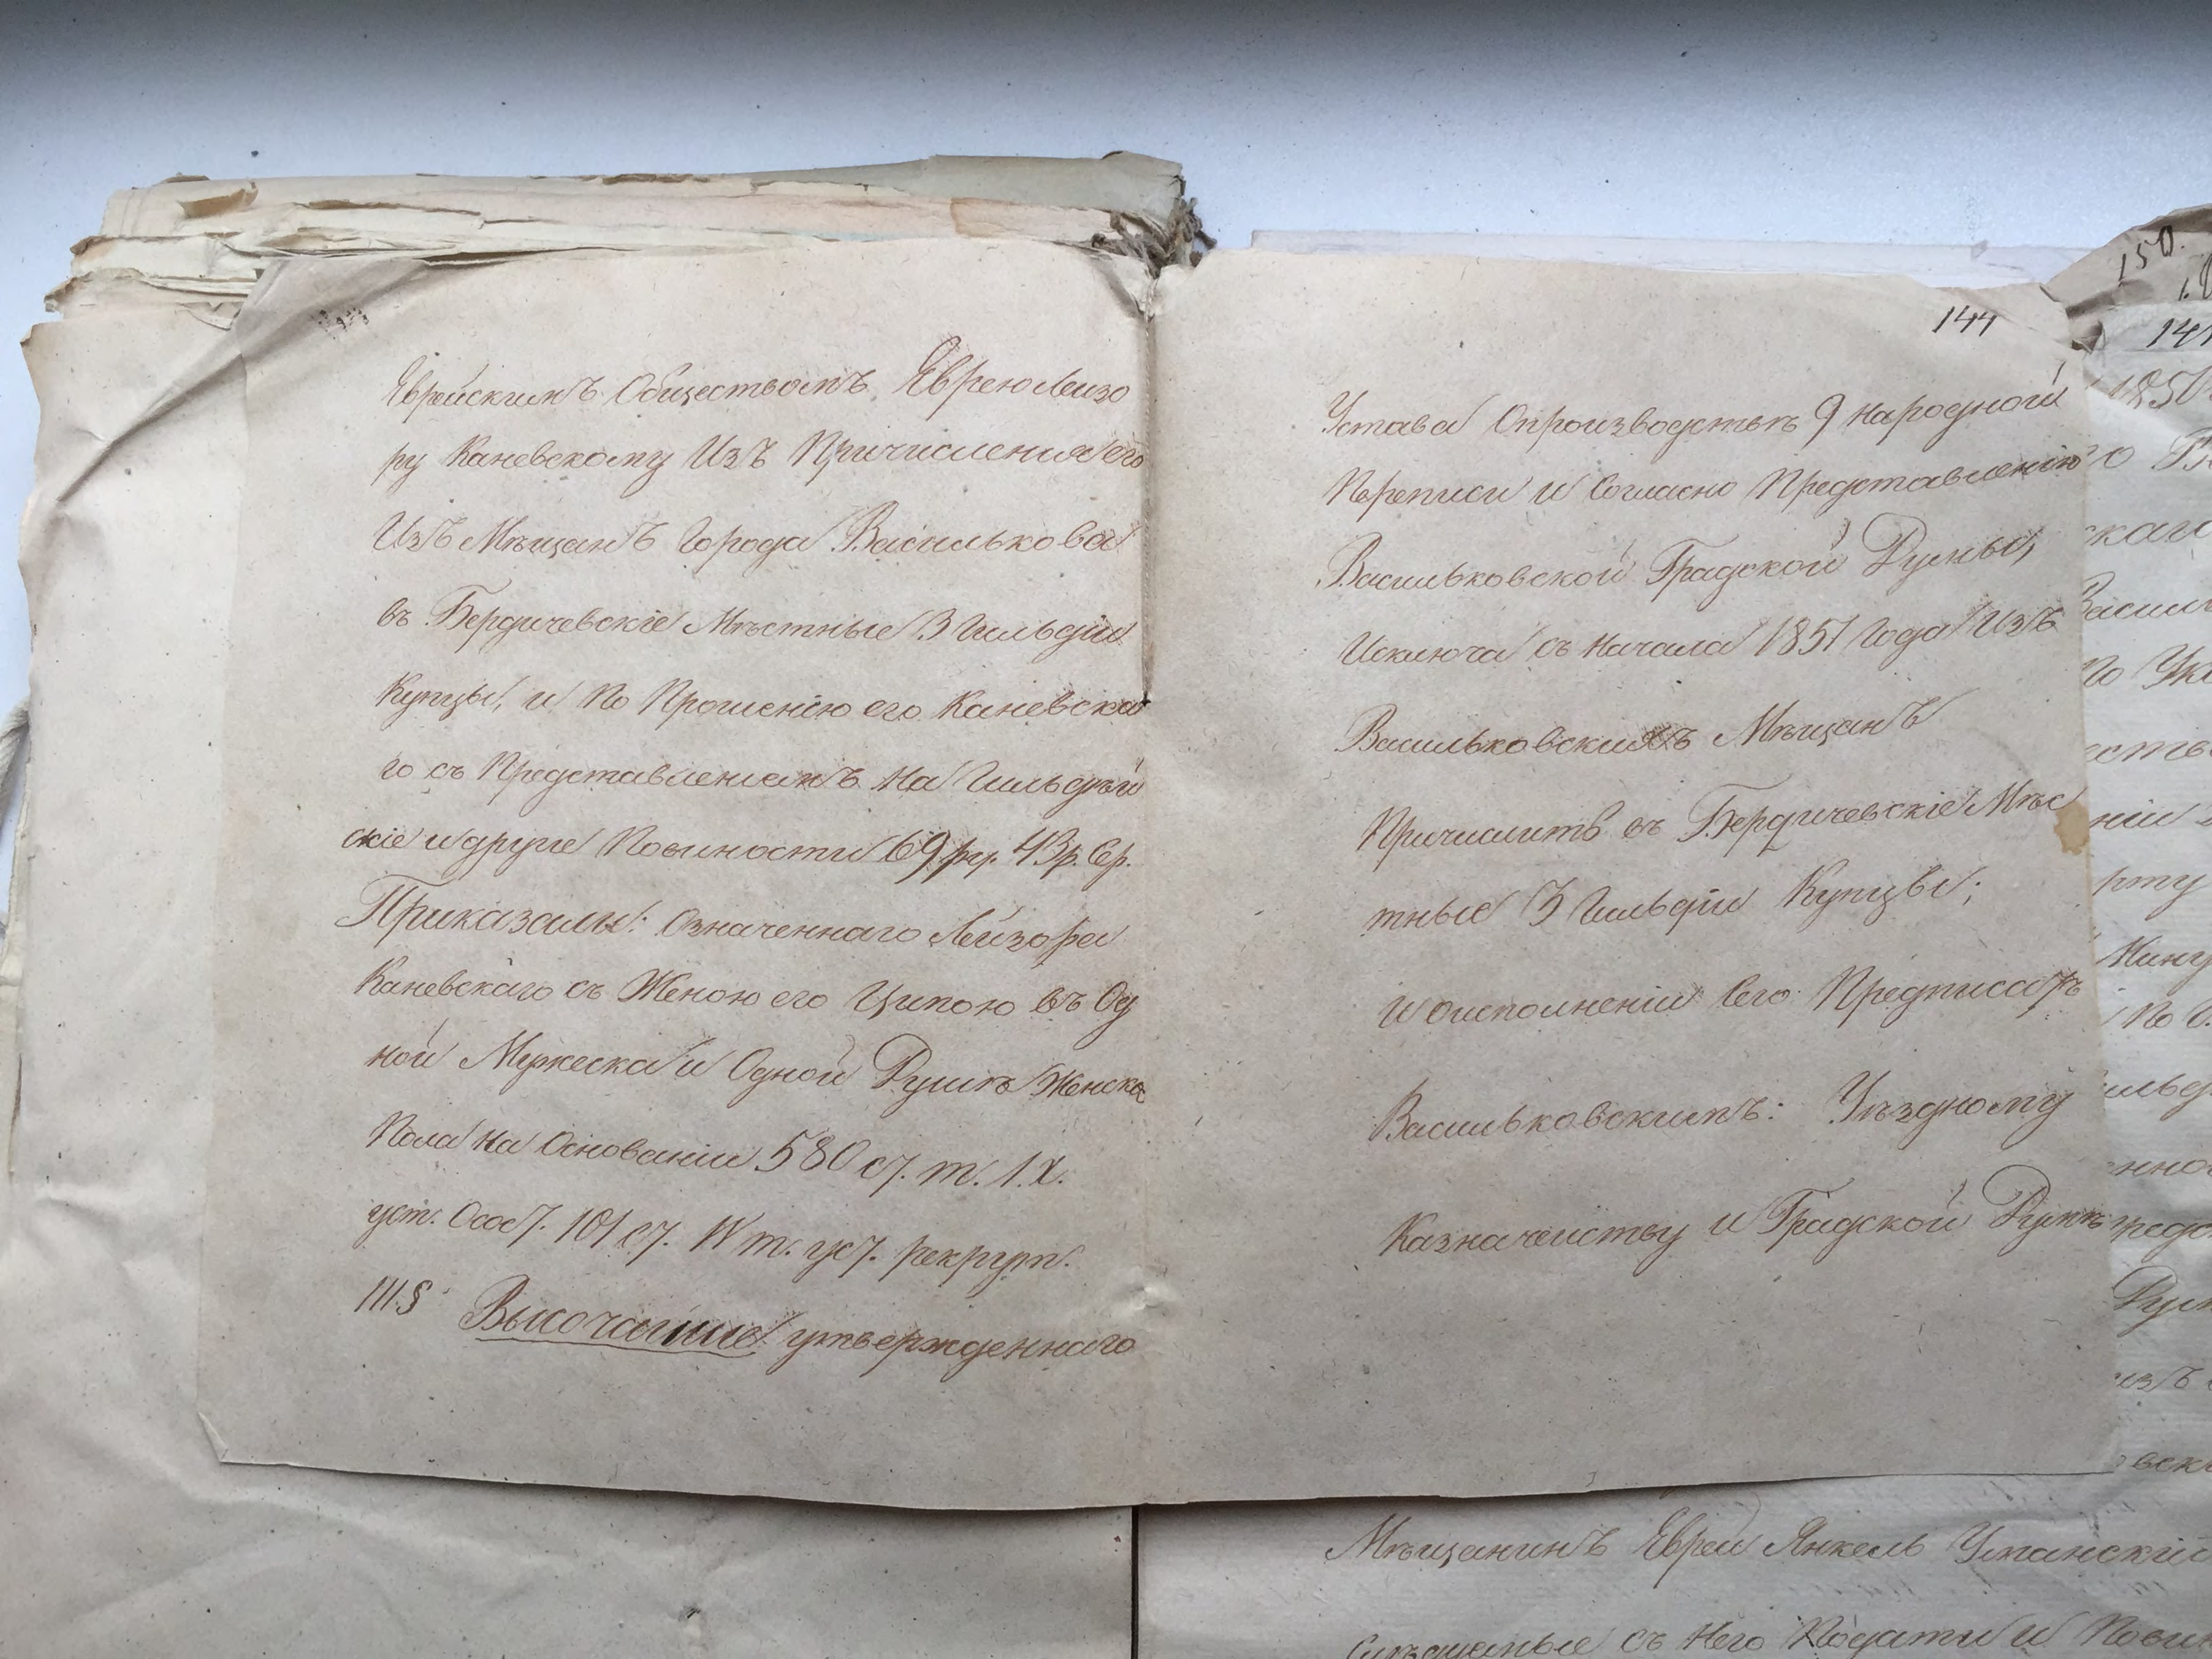 Еврейскимъ Обществомъ Еврею Лейзо
ру Каневскому Изъ Причисления его
Изъ Мѣщанъ Города Василькова
въ Бердичевскіе Мѣстные 3 Гильдіи
Купцы, и По Прошенію его Каневска
го съ Представлениемъ На Гильдѣй
скіе и другие Повиности 69 ру. 43 р. Сер.
Приказали: Означеннаго Лейзора
Каневскаго съ Женою его Ципою въ Од
ной Мужеска и Одной Душѣ Женска
Пола На Основаніи 580 ст. т. IX.
уст. Сост. 101 ст. IV т. уст. рекрут.
111.§ Высочайше утвержденнаго
144
Устава О производствѣ 9 Народной
Переписи и Согласно Представленію
Васильковской Градской Думы,
Исключа съ Начала 1851 Года Изъ
Васильковскихъ Мѣщанъ
Причислить въ Бердичевскіе Мѣс
тные 3 Гильдіи Купцы;
И О исполненіи Сего Предписать
Васильковскимъ: Уѣздному
Казначейству и Градской Думѣ
150.
1850
Мѣщанинъ Еврей Янкель Уманскій
съ Него Подати и